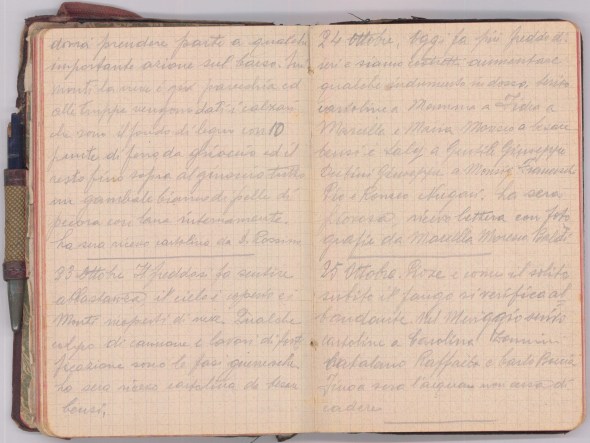 dovra prendere parte a qualche
importante azione sul basso. Sui
monti la neve è qui parecchia ed
alle truppe vengono dati i calzari
che sono il fondo di legno con 10
punte di ferro da ghiaccio ed il
resto fino sopra al ginocchio tutto
un gambale bianco di pelle di
pecora con lana internamente.
La sera ricevo cartolina da
23 Ottobre Il freddo si fa sentire
abbastanza, il cielo è coperto ei
Monti ricoperti di neve. Qualche
colpo di cannone e lavori di forti
ficazione sono le fasi guerresche.
La sera ricevo cartolina da
24 Ottobre, Oggi fa più freddo di
ieri e siamo costretti aumentare
qualche indumento in dosso. Scrivo
cartoline a
Marcello e Maria Moresco a
a Gentili Giuseppe
Giuseppe a
Pio e Romeo Negari. La sera
piovosa, ricevo lettera con foto
grafie da Marcello Moresco
25 Ottobre Piove e come il solito
subito il fango si verifica ab
bondante. Nel Meriggio scrivo
cartoline a Carolina
Raffaello e Carlo
Finoa sera l'acqua non cessa di
cadere